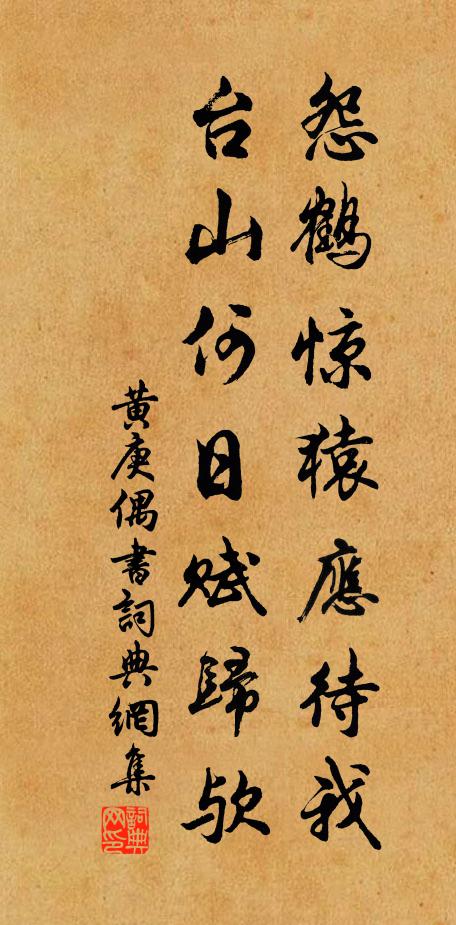 怨鶴惊猿應待我
台山何日赋歸欤
黄庚偶書詞典網集
詞典网印